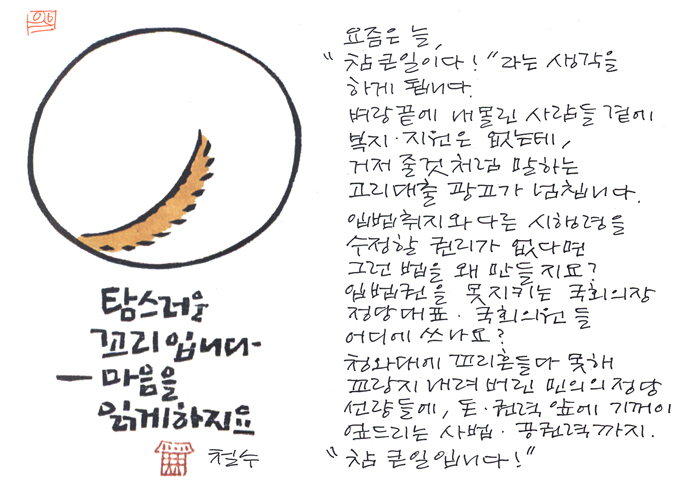 탐스러운
꼬리입니다-
— 마음을
읽게하지요
철수
요즘은 늘,
“참 큰일이다!”라는 생각을
하게 됩니다.
벼랑끝에 내몰린 사람들 곁에
복지·지원은 없는데,
거저 줄것처럼 말하는
고리대출 광고가 넘칩니다.
입법취지와 다른 시행령을
수정할 권리가 없다면
그런 법을 왜 만들지요?
입법권을 못지키는 국회의장
정당대표·국회의원들
어디에 쓰나요?
청와대에 꼬리흔들다 못해
꼬랑지 내려버린 민의의 정당
선량들에, 돈·권력 앞에 기꺼이
엎드리는 사법·공권력까지.
“참 큰일입니다!”